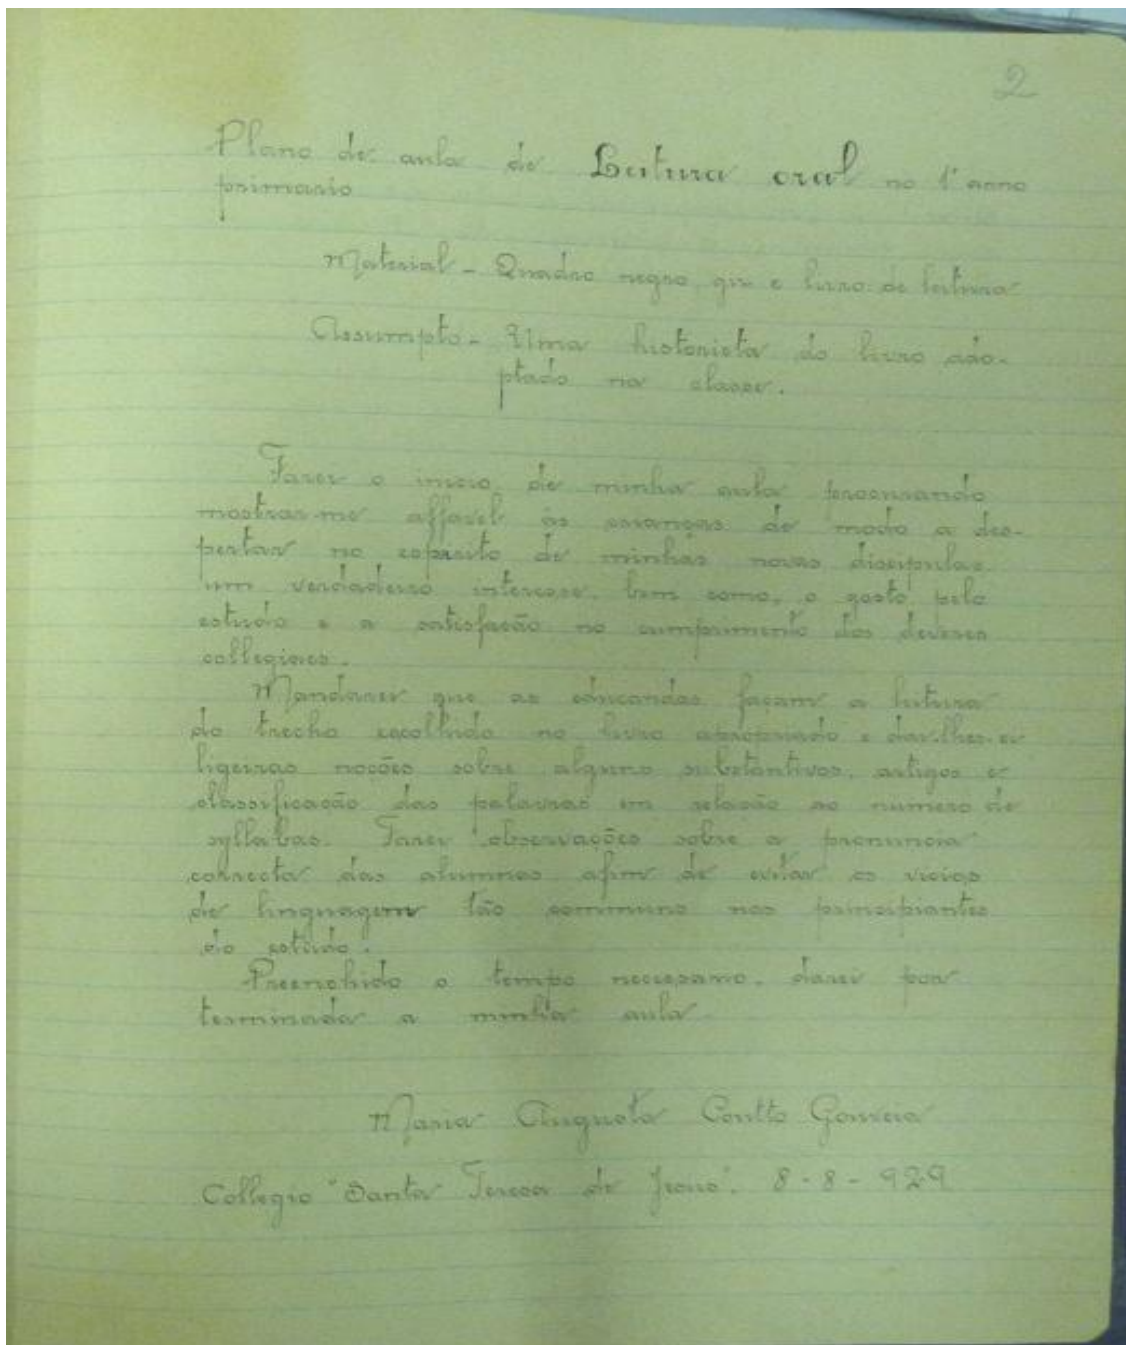 2
Plano de aula de Leitura oral no 1º anno
primario
Material - Quadro negro, giz e livro de leitura
Assumpto - Uma historieta do livro ado-
ptado na classe.
Farei o inicio de minha aula procurando
mostrar-me affavel ás crianças de modo a des-
pertar no espirito de minhas novas discipulas
um verdadeiro interesse, bem como, o gosto pelo
estudo e a satisfação no cumprimento dos deveres
collegiaes.
Mandarei que as educandas façam a leitura
do trecho escolhido no livro apropriado e dar-lhes-ei
ligeiras noções sobre alguns substantivos, artigos e
classificação das palavras em relação ao numero de
syllabas. Farei observações sobre a pronuncia
correcta das alumnas afim de evitar os vicios
de linguagem tão communs nos principiantes
do estudo.
Preenchido o tempo necessario, darei por
terminada a minha aula.
Maria Augusta Coutto
Collegio "Santa Teresa de Jesus". 8-8-929